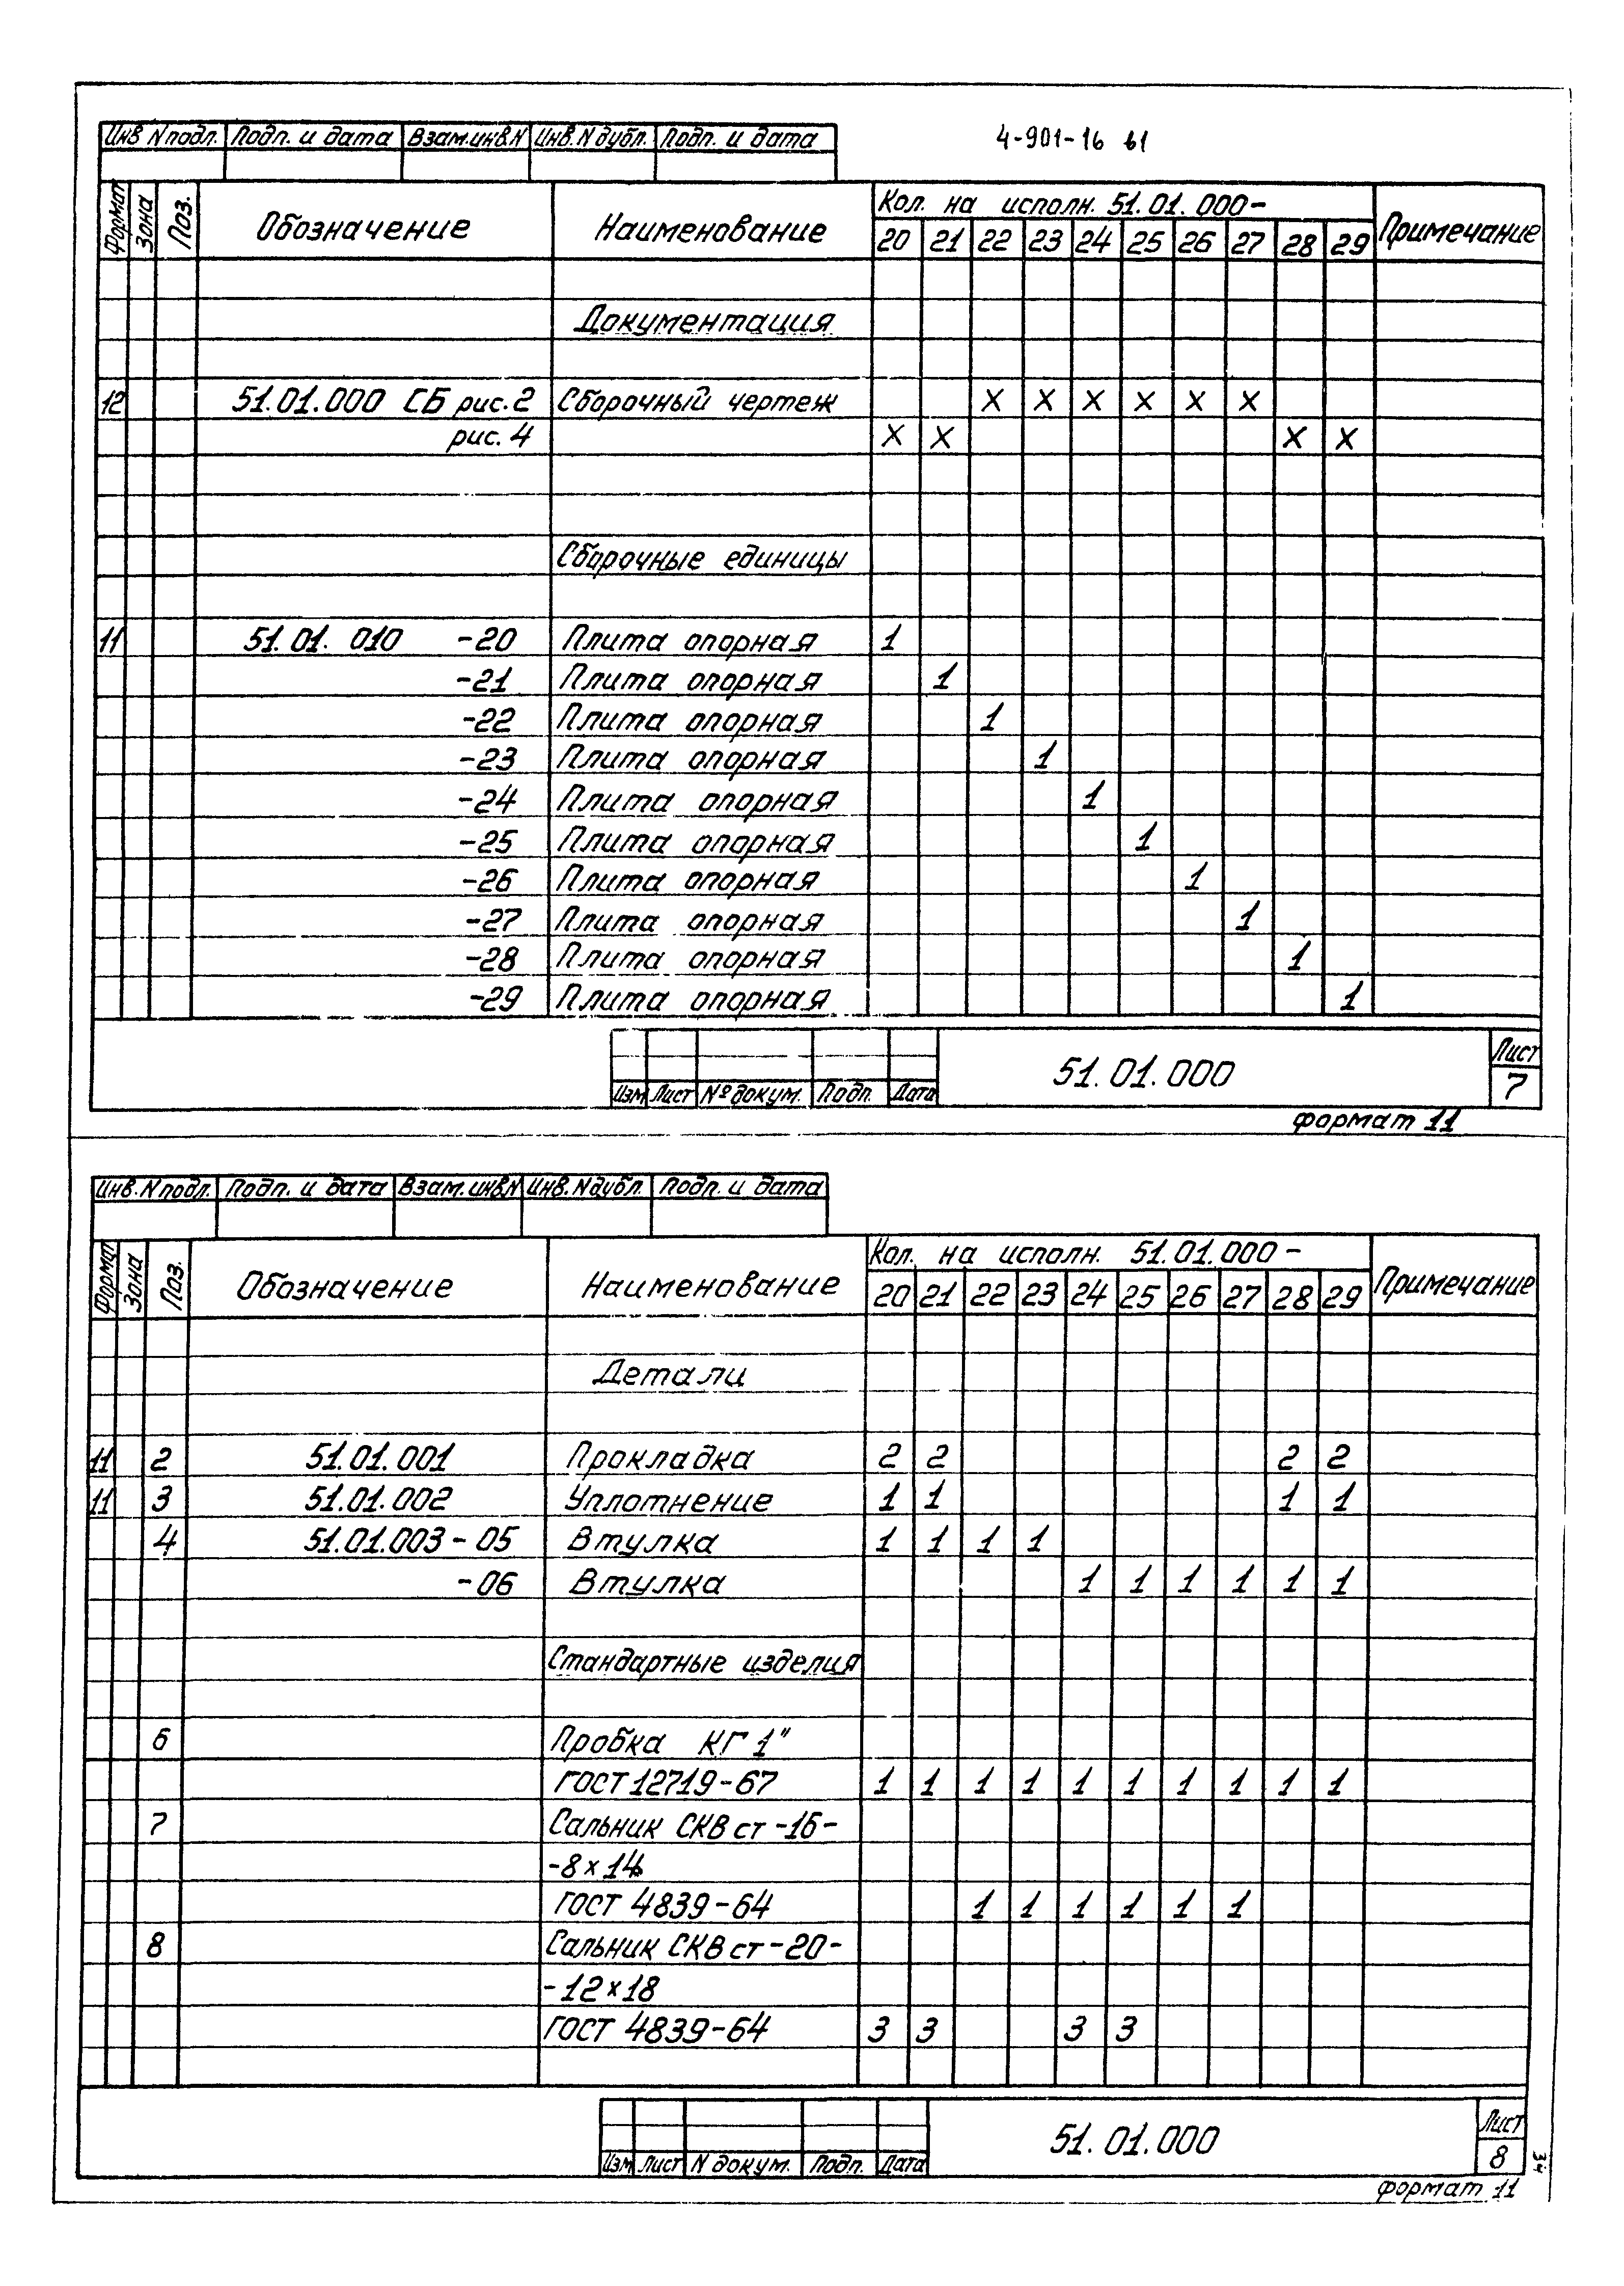 4-901-16 в1
Инв N подл. Подп. и дата Взам.инв.N Инв. N дубл. Подп. и дата
Формат Зона Поз. Обозначение Наименование Кол. на исполн. 51.01.000- Примечание
20 21 22 23 24 25 26 27 28 29
Документация
12 51.01.000 СБ рис.2 Сборочный чертеж х х х х х х
рис. 4 х х х х
Сборочные единицы
11 51.01. 010 -20 Плита опорная 1
-21 Плита опорная 1
-22 Плита опорная 1
-23 Плита опорная 1
-24 Плита опорная 1
-25 Плита опорная 1
-26 Плита опорная 1
-27 Плита опорная 1
-28 Плита опорная 1
-29 Плита опорная 1
Изм Лист № докум. Подп. Дата 51.01.000 Лист 7
формат 11
Инв. N подл. Подп. и дата Взам.инв.N Инв. N дубл. Подп. и дата
Формат Зона Поз. Обозначение Наименование Кол. на исполн. 51.01.000- Примечание
20 21 22 23 24 25 26 27 28 29
Детали
11 2 51.01.001 Прокладка 2 2 2 2
11 3 51.01.002 Уплотнение 1 1 1 1
4 51.01.003-05 Втулка 1 1 1 1
-06 Втулка 1 1 1 1 1 1
Стандартные изделия
6 Пробка КГ 1"
ГОСТ 12719-67 1 1 1 1 1 1 1 1 1 1
7 Сальник СКВ ст -16-
-8х14
ГОСТ 4839-64 1 1 1 1 1 1
8 Сальник СКВ ст -20-
-12х18
ГОСТ 4839-64 3 3 3 3
Изм Лист N докум. Подп. Дата 51.01.000 Лист 8
34
формат 11